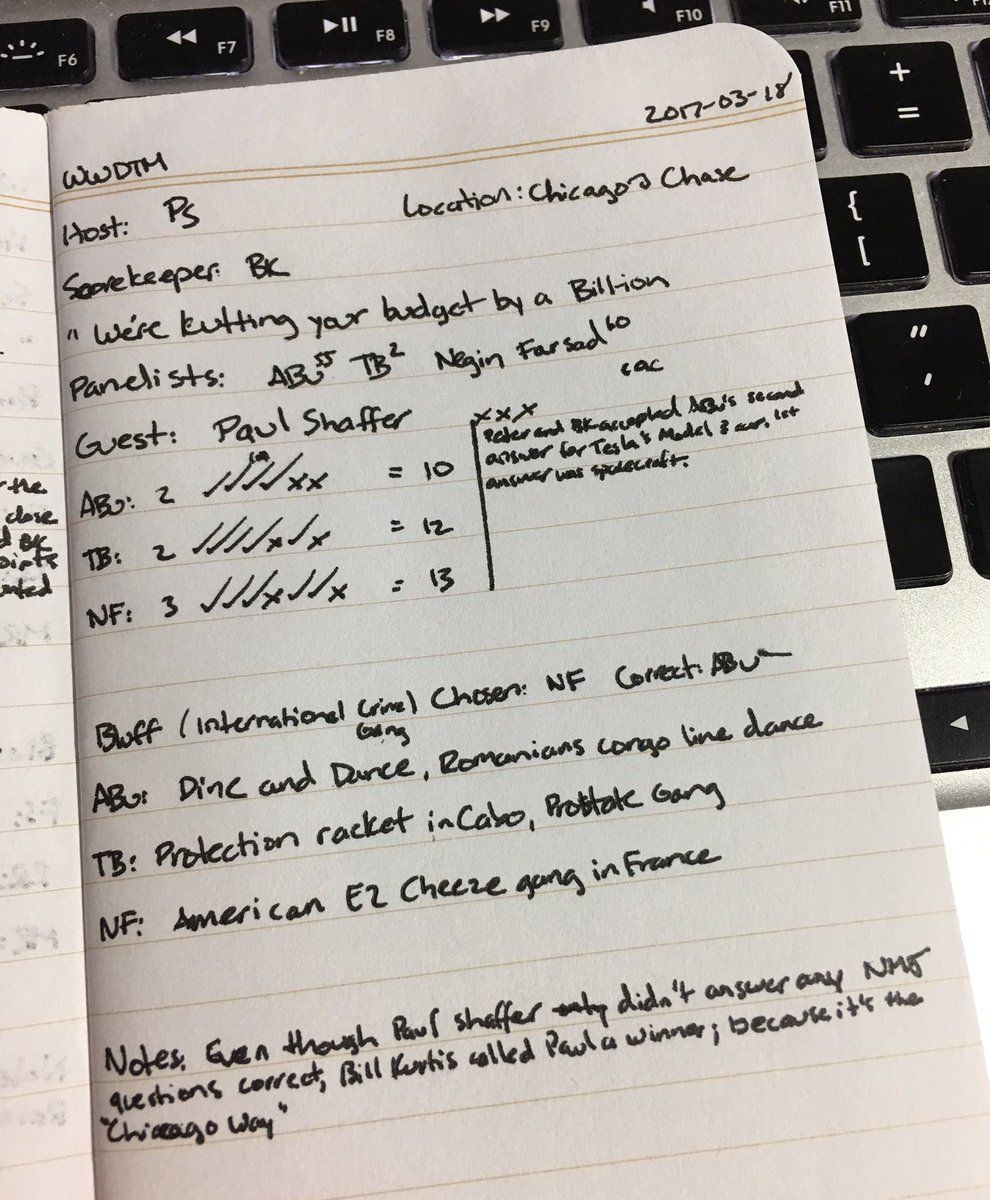 F6
F7
F8
F9
F10
F11
+
=
{
[
"
'
2017-03-18
WWDTM
Host: PS
Location: Chicago → Chase
Scorekeeper: BK
" We're Kutting your budget by a Billion
Panelists: ABu⁵⁵ TB² Negin Farsad⁶⁰
Guest: Paul Shaffer
xxx
Peter and BK accepted ABu's second
answer for Tesla's Model 3 car. 1st
answer was spacecraft.
ABu: 2 ✓✓✓✓xx = 10
TB: 2 ✓✓✓✓x✓x = 12
NF: 3 ✓✓✓x✓✓x = 13
Bluff (International Crime) Chosen: NF Correct: ABu
Gang
ABu: Dine and Dance, Romanians congo line dance
TB: Protection racket in Cabo, Prostate Gang
NF: American EZ Cheeze gang in France
Notes: Even though Paul Shaffer only didn't answer any NMJ
questions correct, Bill Kurtis called Paul a winner; because it's the
"Chicago Way"
the
close
BK
points